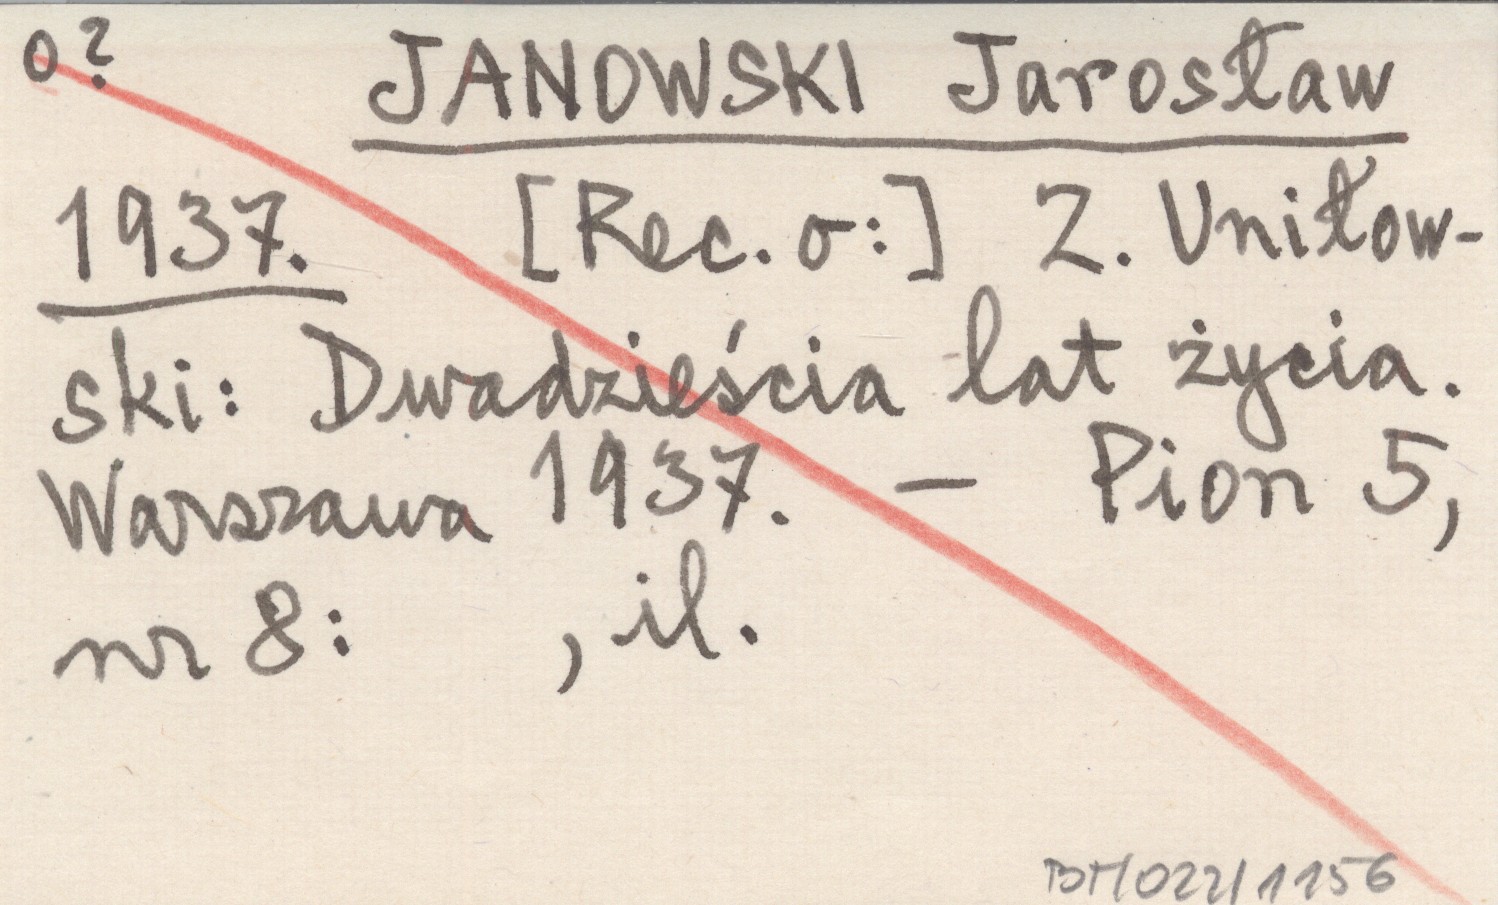 o? JANOWSKI Jarosław
1937. [Rec. o:] Z. Uniłow-
ski: Dwadzieścia lat życia.
Warszawa 1937. — Pion 5,
nr 8: , il.
BM/022/1156